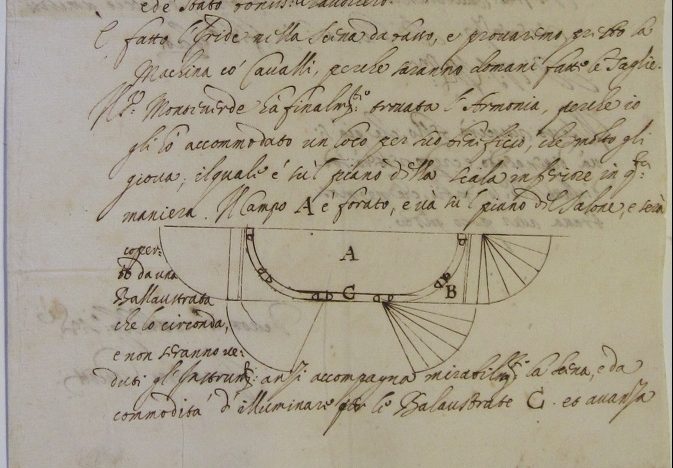 fatto l'Iride nella scena da basso, e provaremo presto la
Machina co' Cavalli, perche saranno domani fatte le Taglie.
Il Sr. Monteverde ha finalm.te trovata l'Armonia, perche io
gli ho accommodato un loco per suo beneficio, che molto gli
giova, il quale é su'l piano della scala inferiore in q.ta
maniera. Il campo A é forato, e và su'l piano del salone, e serà
coper-
to da una
Ballaustrata
che lo circonda,
e non seranno ve-
duti gl'instrum.ti: anzi accompagna mirabilm.te la scena, e da
commodità d'illuminare per le Balaustrate C. et avanza
A
B
C